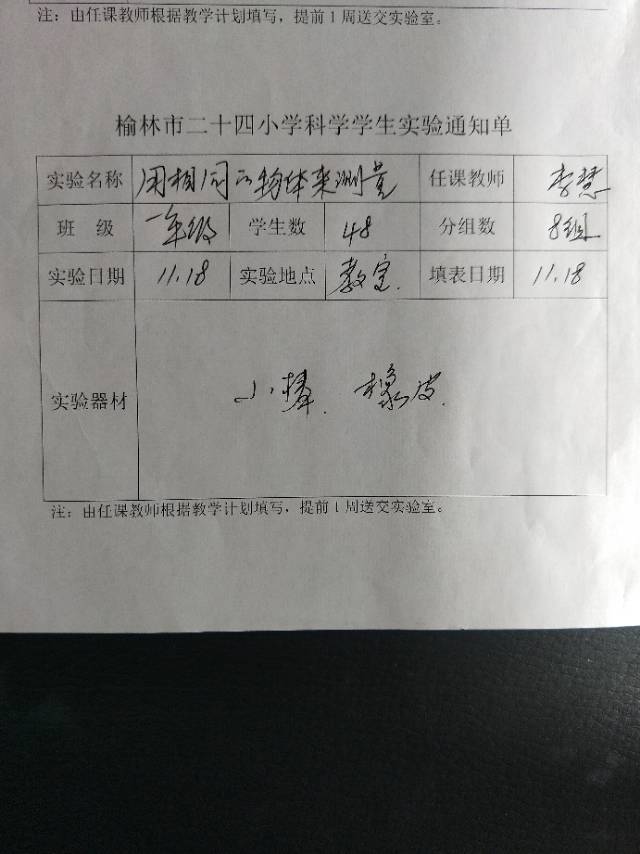 注：由任课教师根据教学计划填写，提前1周送交实验室。
榆林市二十四小学科学学生实验通知单
实验名称 用相同的物体来测量 任课教师 李慧
班 级 一年级 学生数 48 分组数 8组
实验日期 11.18 实验地点 教室. 填表日期 11.18
实验器材 小棒. 橡皮.
注：由任课教师根据教学计划填写，提前1周送交实验室。